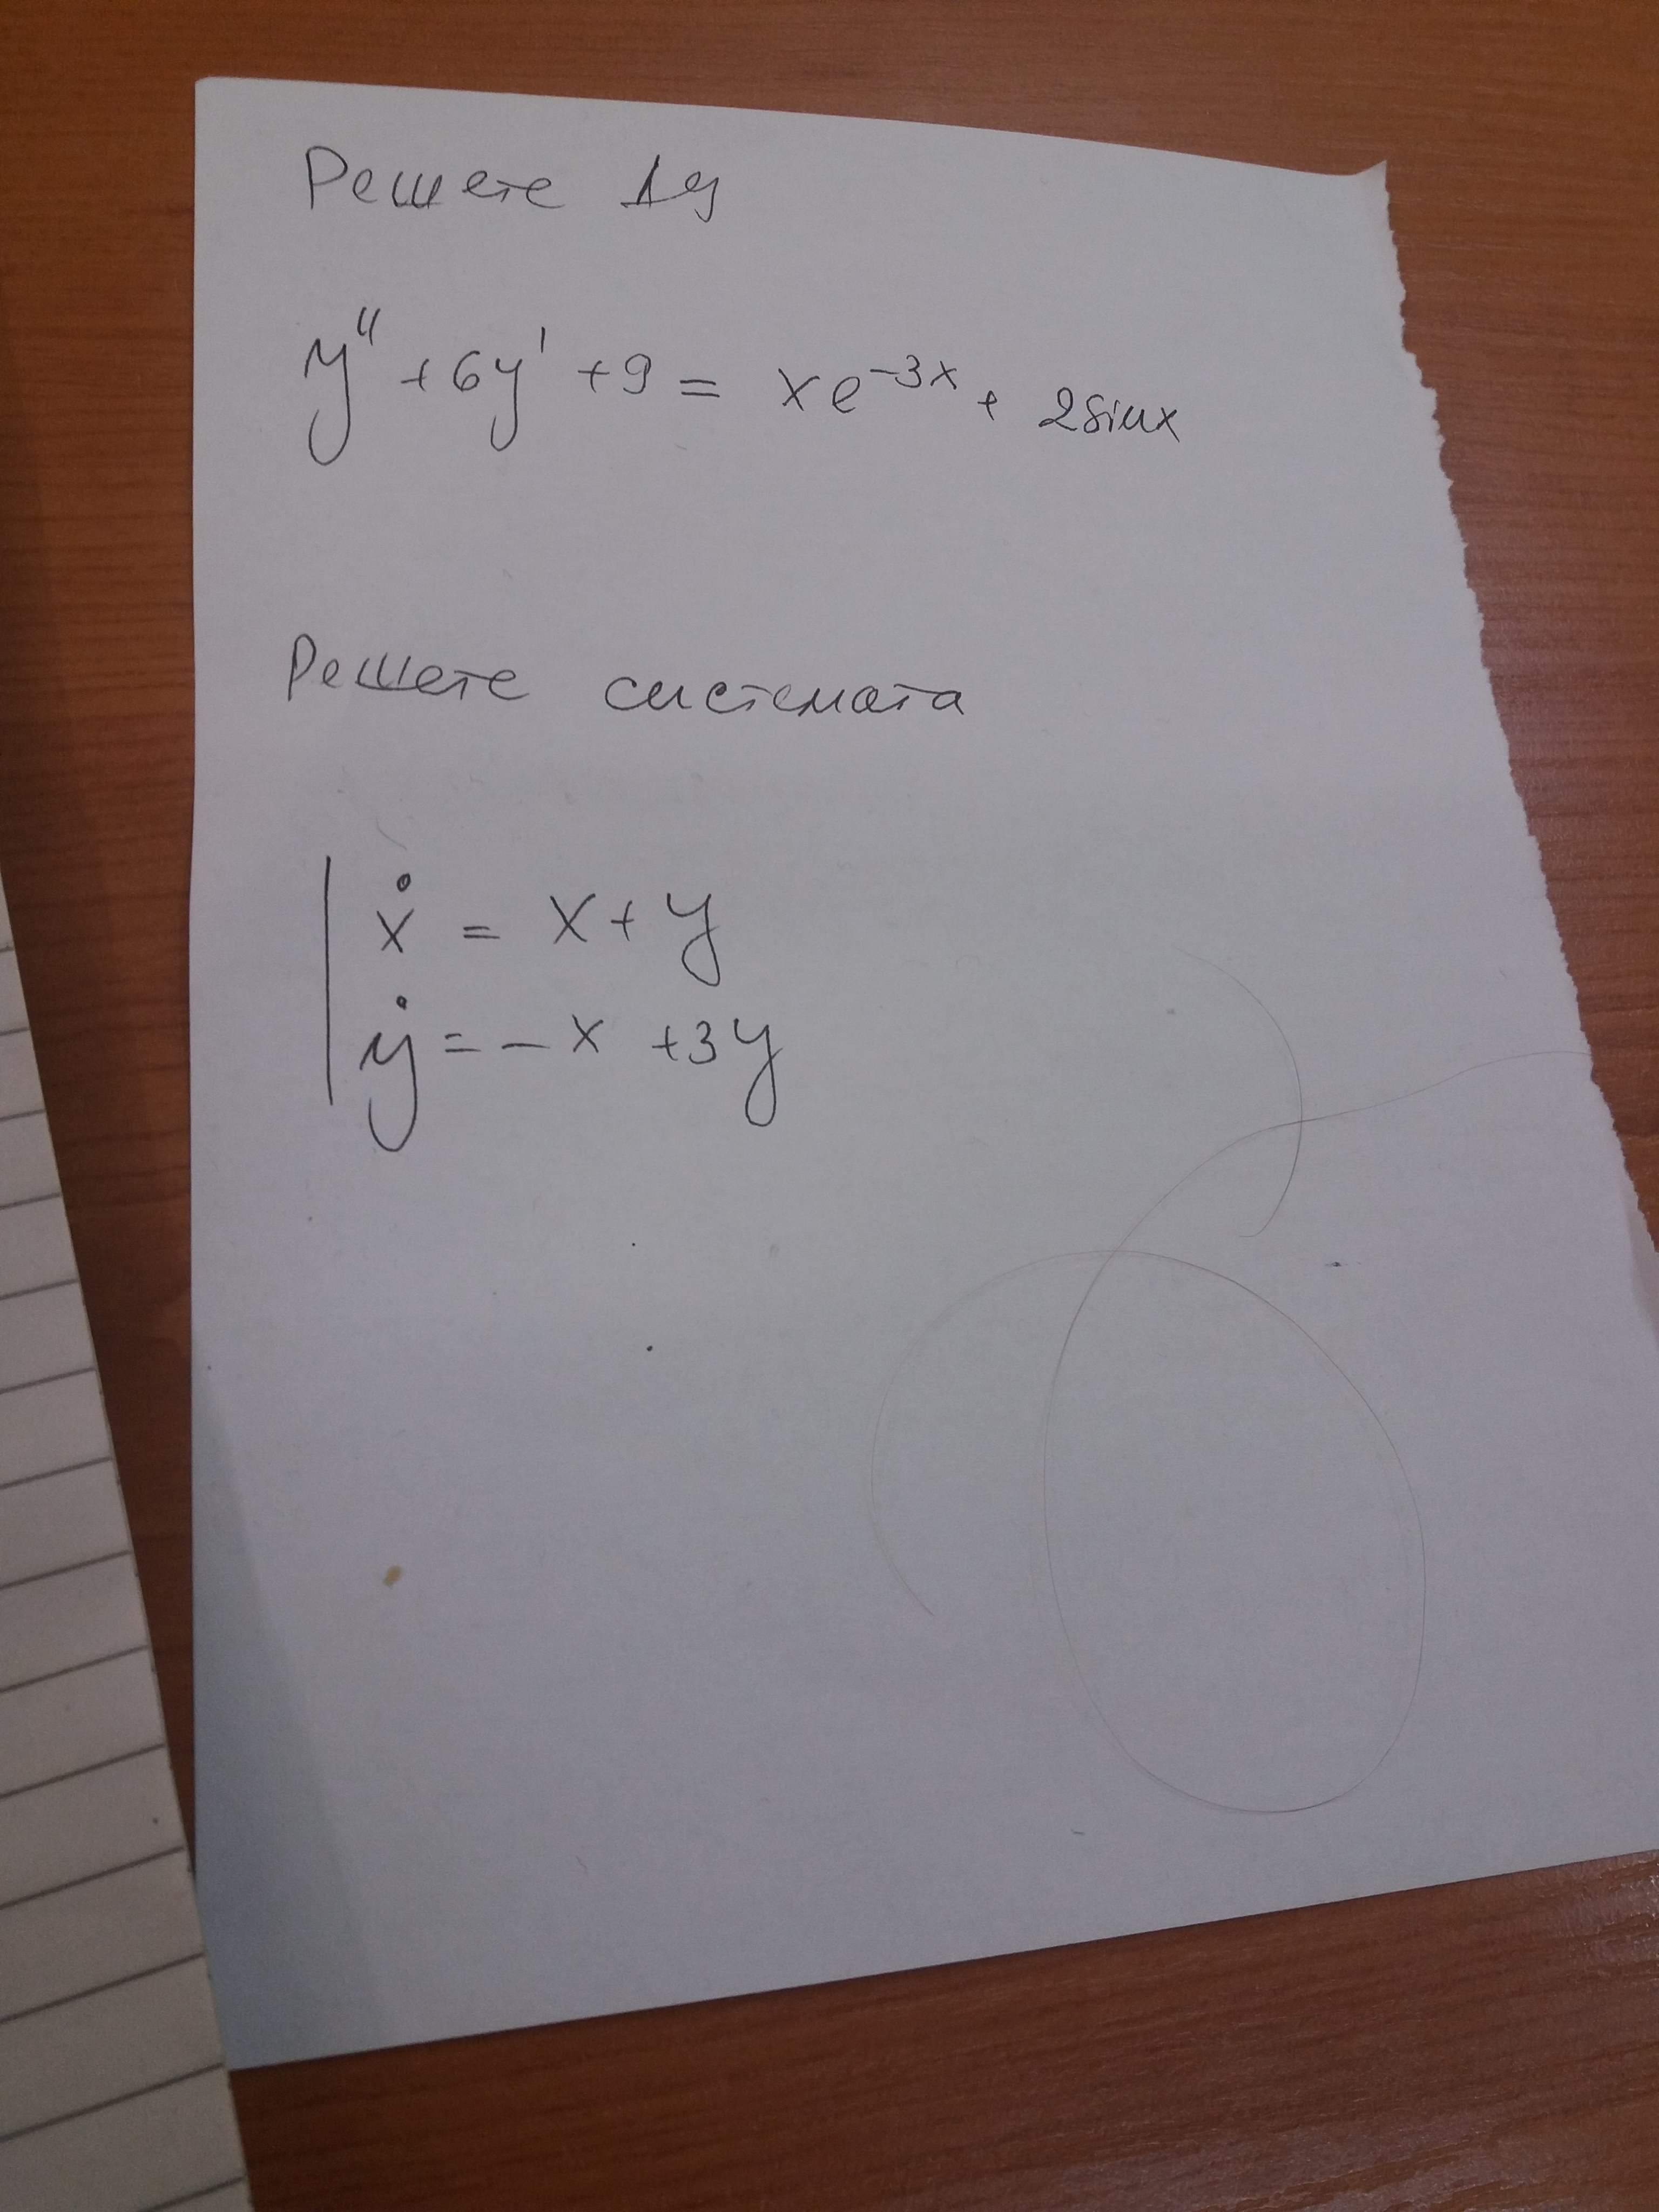 Решете ДУ
y'' + 6y' + 9 = xe⁻³ˣ + 2sinx
Решете системата
ẋ = x + y
ẏ = - x + 3y